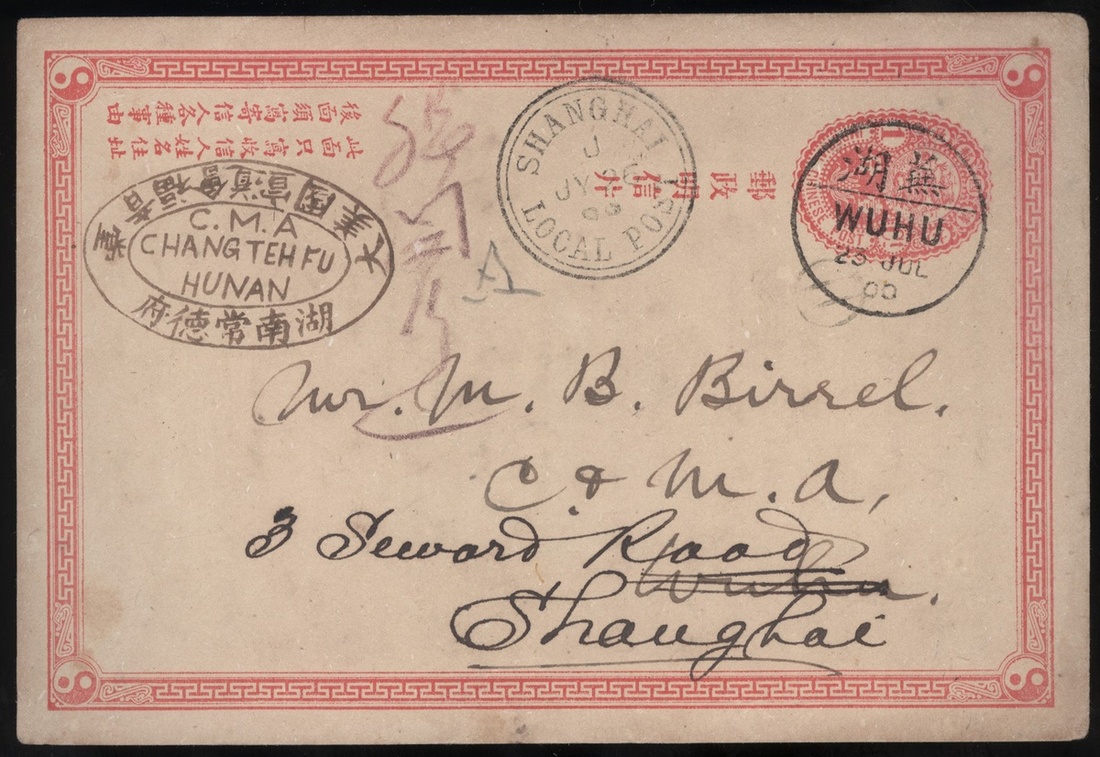 此面只寫收信人姓名住址
後面須寫寄信人各種事由
郵政明信片
大美國宣道會福音堂
C.M.A
CHANGTEHFU
HUNAN
湖南常德府
SHANGHAI
J
JY
LOCAL POST
1
蕪湖
WUHU
JUL
00
A
Mr. M. B. Birrel.
C. & M. A,
3 Seward Road
Wuhu.
Shanghai